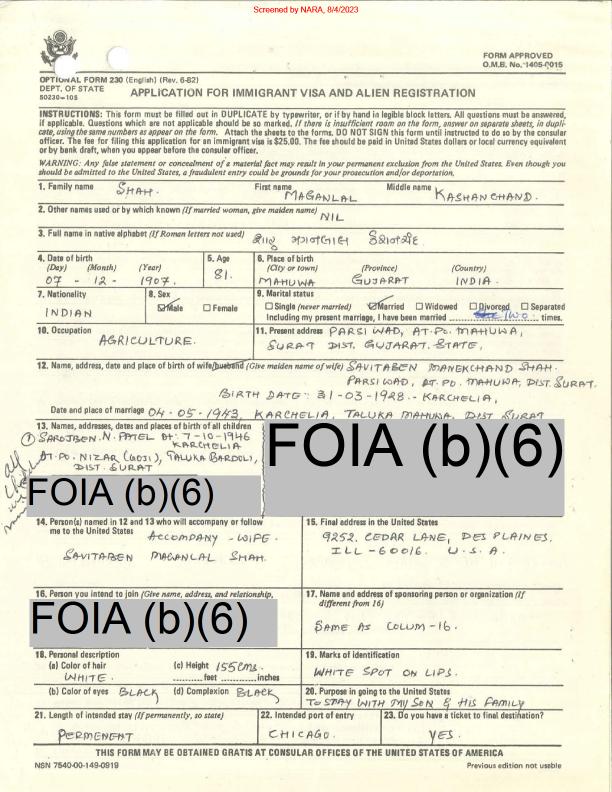 Screened by NARA, 8/4/2023
FORM APPROVED
O.M.B. No. 1405-0015
OPTIONAL FORM 230 (English) (Rev. 6-82)
DEPT. OF STATE
50230-105
APPLICATION FOR IMMIGRANT VISA AND ALIEN REGISTRATION
INSTRUCTIONS: This form must be filled out in DUPLICATE by typewriter, or if by hand in legible block letters. All questions must be answered,
if applicable. Questions which are not applicable should be so marked. If there is insufficient room on the form, answer on separate sheets, in dupli-
cate, using the same numbers as appear on the form. Attach the sheets to the forms. DO NOT SIGN this form until instructed to do so by the consular
officer. The fee for filing this application for an immigrant visa is $25.00. The fee should be paid in United States dollars or local currency equivalent
or by bank draft, when you appear before the consular officer.
WARNING: Any false statement or concealment of a material fact may result in your permanent exclusion from the United States. Even though you
should be admitted to the United States, a fraudulent entry could be grounds for your prosecution and/or deportation.
1. Family name First name Middle name
SHAH. MAGANLAL KASHANCHAND.
2. Other names used or by which known (If married woman, give maiden name) NIL
3. Full name in native alphabet (If Roman letters not used)
4. Date of birth 5. Age 6. Place of birth
(Day) (Month) (Year) (City or town) (Province) (Country)
07 - 12 - 1907. 81. MAHUWA GUJARAT INDIA.
7. Nationality 8. Sex 9. Marital status
INDIAN Male Female Single (never married) Married Widowed Divorced Separated
Including my present marriage, I have been married TWO times.
10. Occupation 11. Present address PARSI WAD, AT. PO. MAHUWA,
AGRICULTURE. SURAT DIST. GUJARAT. STATE,
12. Name, address, date and place of birth of wife/husband (Give maiden name of wife) SAVITABEN MANEKCHAND SHAH.
PARSIWAD, AT. PO. MAHUWA, DIST. SURAT.
BIRTH DATE: 31-03-1928. - KARCHELIA,
Date and place of marriage 04-05-1943, KARCHELIA, TALUKA MAHUWA, DIST SURAT
13. Names, addresses, dates and places of birth of all children
① SAROJBEN. N. PATEL BT: 7-10-1946
KARCHELIA
AT. PO. NIZAR (GOJI), TALUKA BARDOLI,
DIST. SURAT
all
FOIA (b)(6)
FOIA (b)(6)
14. Person(s) named in 12 and 13 who will accompany or follow
me to the United States ACCOMPANY - WIFE.
SAVITABEN MAGANLAL SHAH.
15. Final address in the United States
9252, CEDAR LANE, DES PLAINES,
ILL - 60016. U.S.A.
16. Person you intend to join (Give name, address, and relationship,
FOIA (b)(6)
17. Name and address of sponsoring person or organization (If
different from 16)
SAME AS COLUM-16.
18. Personal description
(a) Color of hair (c) Height 155 CMS.
WHITE. feet inches
(b) Color of eyes BLACK (d) Complexion BLACK
19. Marks of identification
WHITE SPOT ON LIPS.
20. Purpose in going to the United States
TO STAY WITH MY SON & HIS FAMILY
21. Length of intended stay (If permanently, so state) 22. Intended port of entry 23. Do you have a ticket to final destination?
PERMENENT CHICAGO. YES.
THIS FORM MAY BE OBTAINED GRATIS AT CONSULAR OFFICES OF THE UNITED STATES OF AMERICA
NSN 7540-00-149-0919 Previous edition not usable